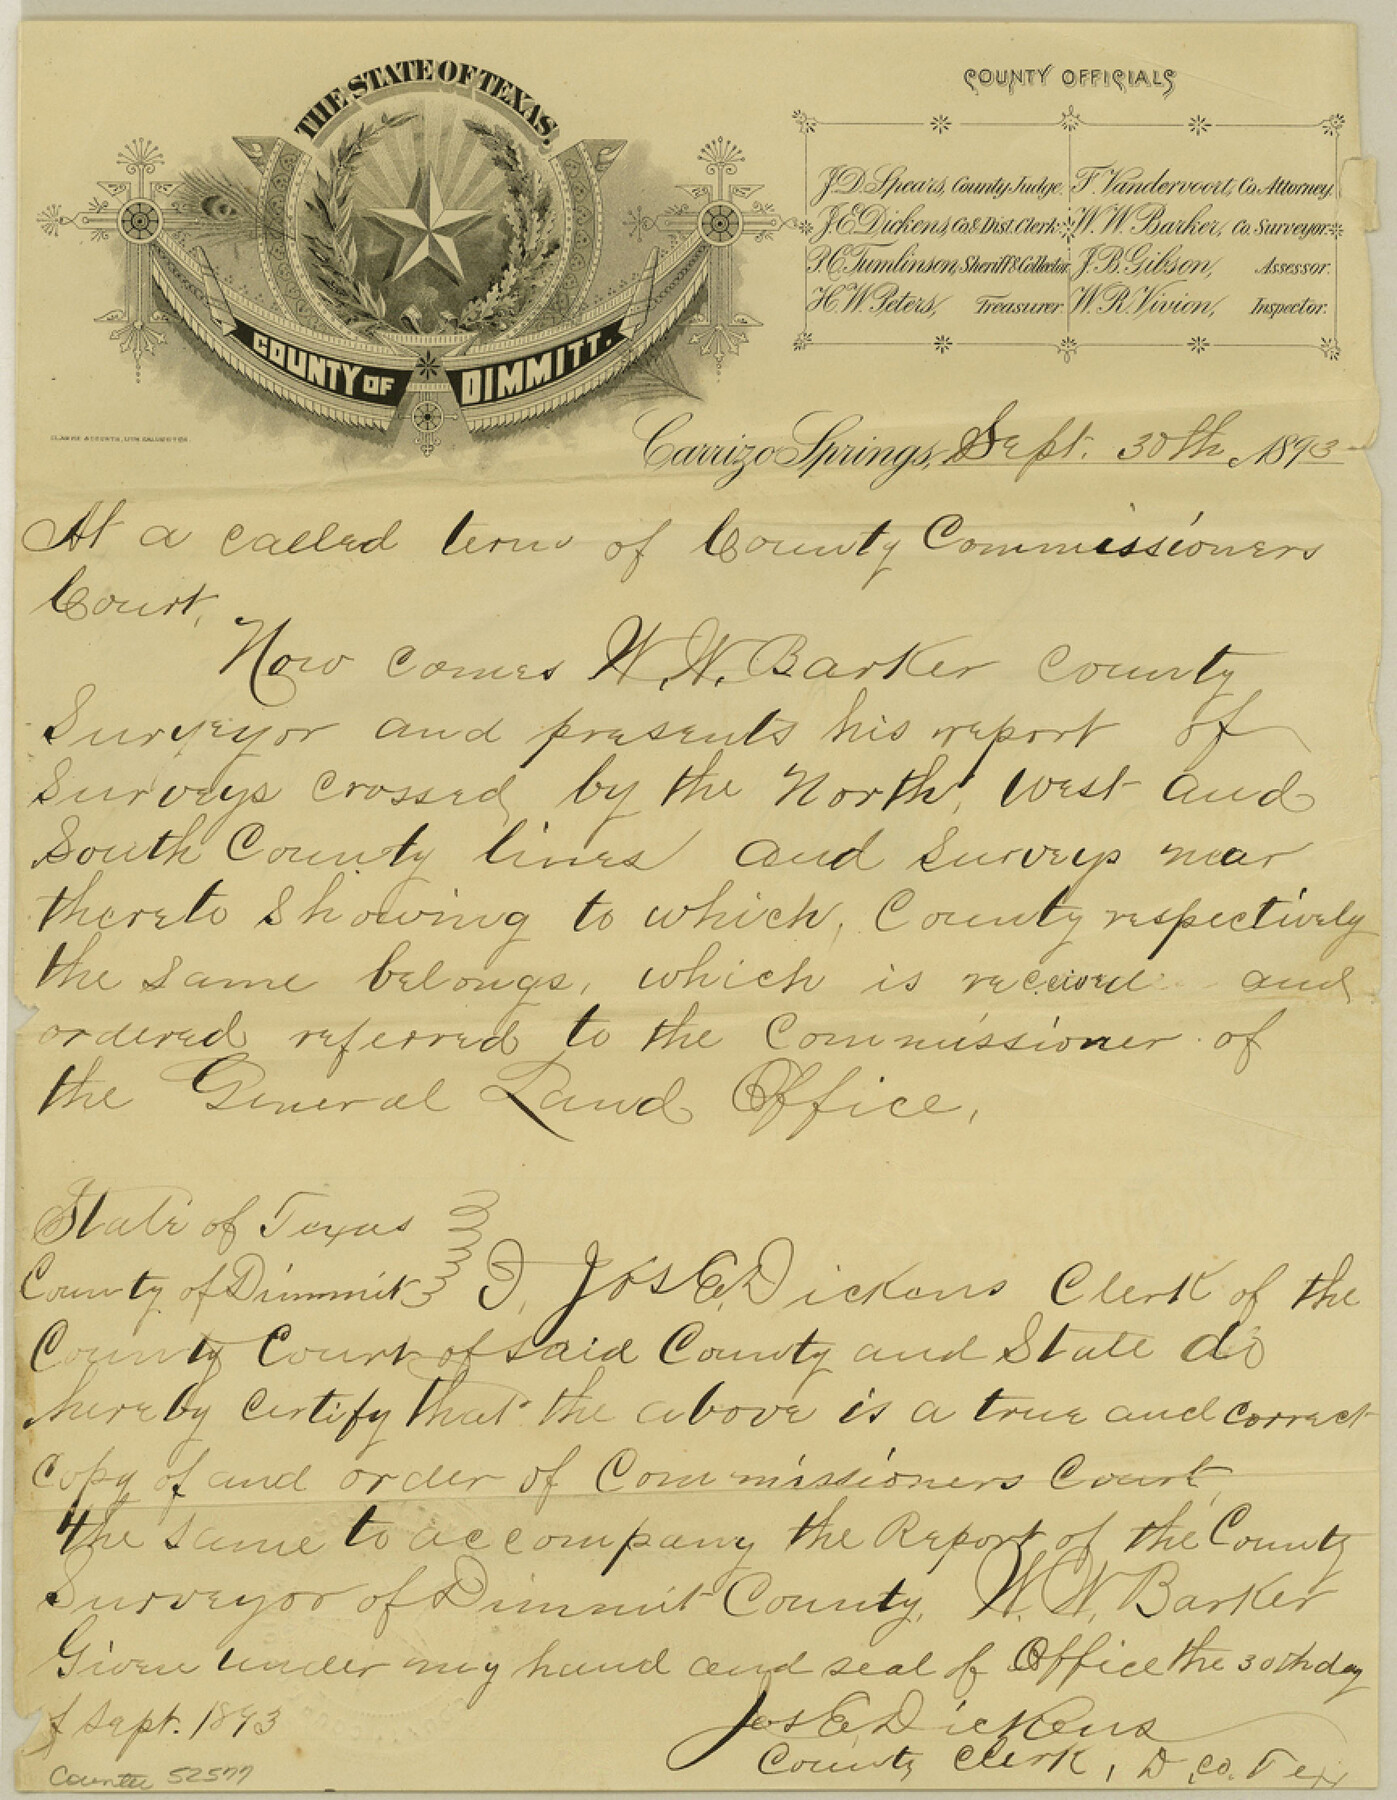 THE STATE OF TEXAS.
COUNTY OF DIMMITT.
COUNTY OFFICIALS
J.D. Spears, County Judge. F. Vandervoort, Co. Attorney.
J.E. Dickens, Co. & Dist. Clerk. W.W. Barker, Co. Surveyor.
P.C. Tumlinson, Sheriff & Collector. J.B. Gibson, Assessor.
H.W. Peters, Treasurer. W.R. Vivion, Inspector.
Carrizo Springs, Sept. 30th 1893
At a called term of County Commissioners
Court,
Now comes W.W. Barker County
Surveyor and presents his report of
Surveys crossed by the North, West and
South County lines and Surveys near
thereto showing to which, County respectively
the same belongs, which is received and
ordered referred to the Commissioner of
the General Land Office,
State of Texas
County of Dimmit I, Jos E. Dickens Clerk of the
County Court of said County and State do
hereby certify that the above is a true and correct
copy of and order of Commissioners Court,
the same to accompany the Report of the County
Surveyor of Dimmit County, W.W. Barker
Given under my hand and seal of Office the 30th day
of Sept. 1893
Jos E. Dickens
County Clerk, D. Co. Tex
Counter 52577